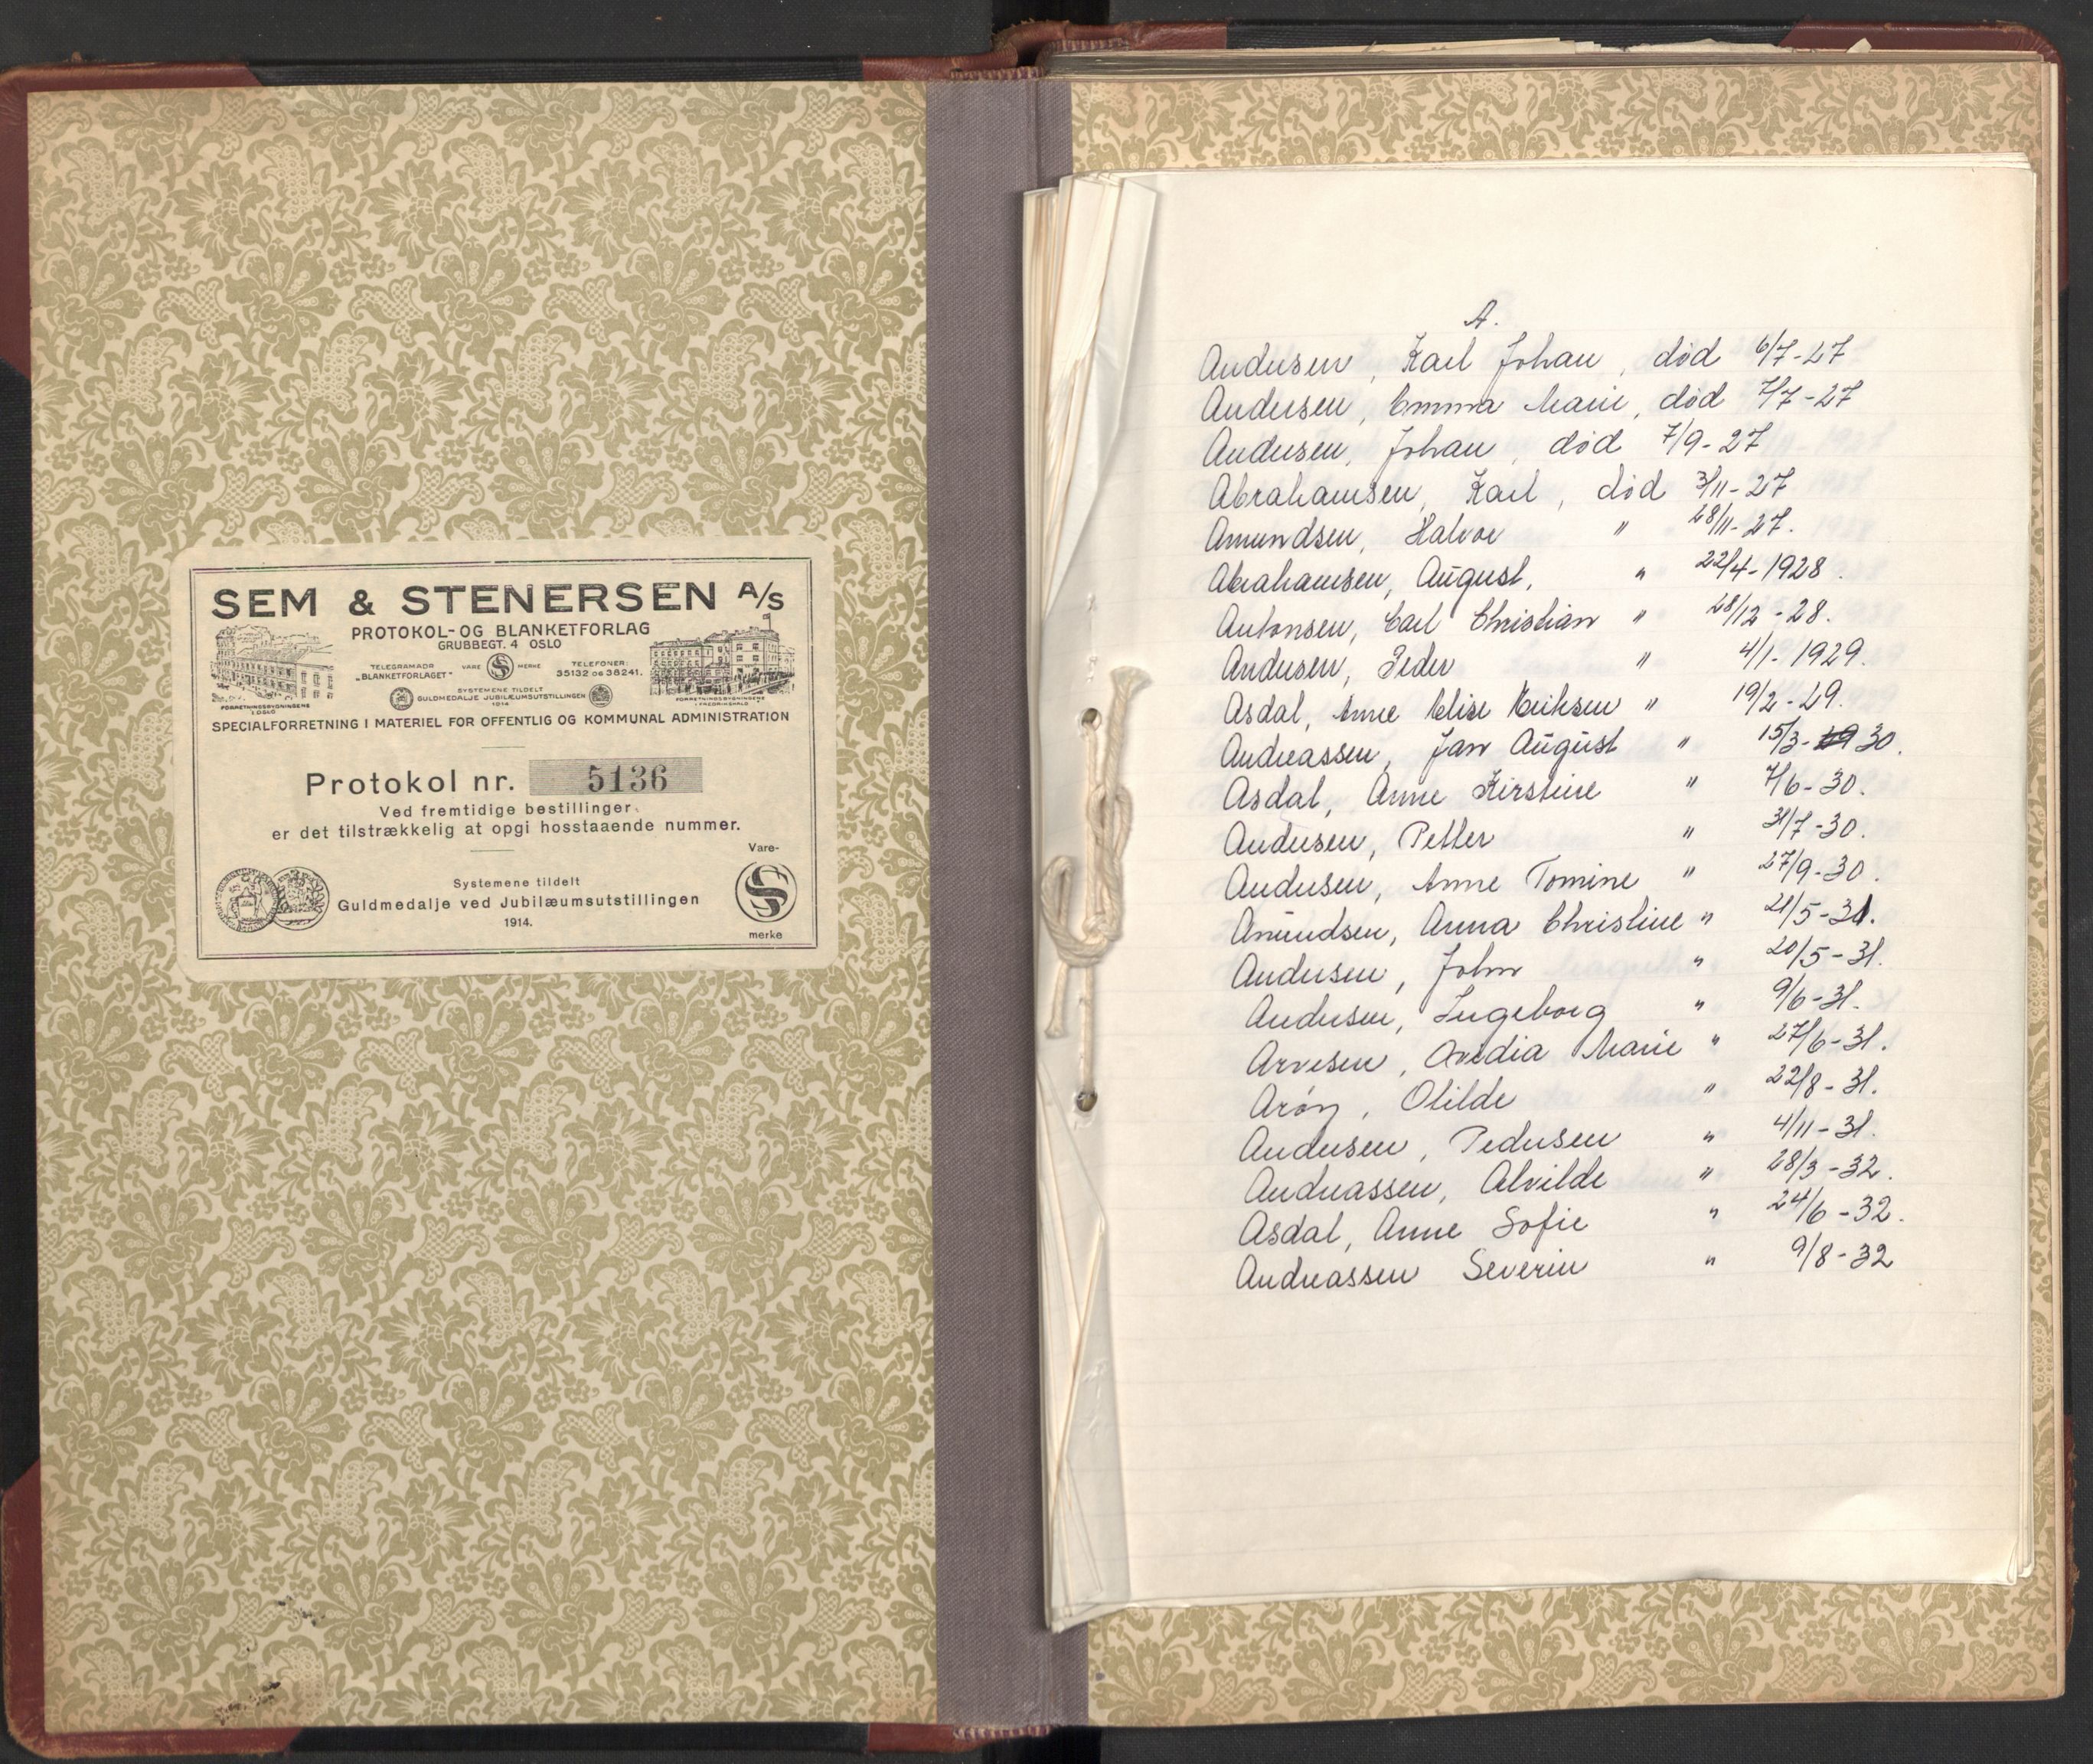 SEM & STENERSEN A/S
PROTOKOL- OG BLANKETFORLAG
GRUBBEGT. 4 OSLO
TELEGRAMADR
„BLANKETFORLAGET"
VARE S MERKE
TELEFONER:
35132 OG 38241.
SYSTEMENE TILDELT
GULDMEDALJE JUBILÆUMSUTSTILLINGEN
1914
FORRETNINGSBYGNINGENE
I OSLO
FORRETNINGSBYGNINGENE
I FREDRIKSHALD
SPECIALFORRETNING I MATERIEL FOR OFFENTLIG OG KOMMUNAL ADMINISTRATION
Protokol nr. 5136
Ved fremtidige bestillinger
er det tilstrækkelig at opgi hosstaaende nummer.
Systemene tildelt
Guldmedalje ved Jubilæumsutstillingen
1914.
Vare-
merke
A.
Andersen, Karl Johan, død 6/7-27
Andersen, Emma Marie, død 7/7-27
Andersen, Johan, død 7/9-27
Abrahamsen, Karl, død 3/11-27
Amundsen, Halvor " 28/11-27.
Abrahamsen, August, " 22/4-1928.
Antonsen, Carl Christian " 28/12-28.
Andersen, Peder " 4/1-1929.
Asdal, Anne Elise Eriksen " 19/2-29.
Andreassen, Jan August " 15/3-29 30.
Asdal, Anne Kirstine " 7/6-30.
Andersen, Petter " 31/7-30.
Andersen, Anne Tomine " 27/9-30.
Amundsen, Anna Christine " 21/5-31.
Andersen, John " 20/5-31.
Andersen, Ingeborg " 9/6-31.
Arvesen, Ovedia Marie " 27/6-31.
Arøy, Olilde " 22/8-31.
Andersen, Pedersen " 4/11-31.
Andreassen, Alvilde " 28/3-32.
Asdal, Anne Sofie " 24/6-32.
Andreassen Severin " 9/8-32